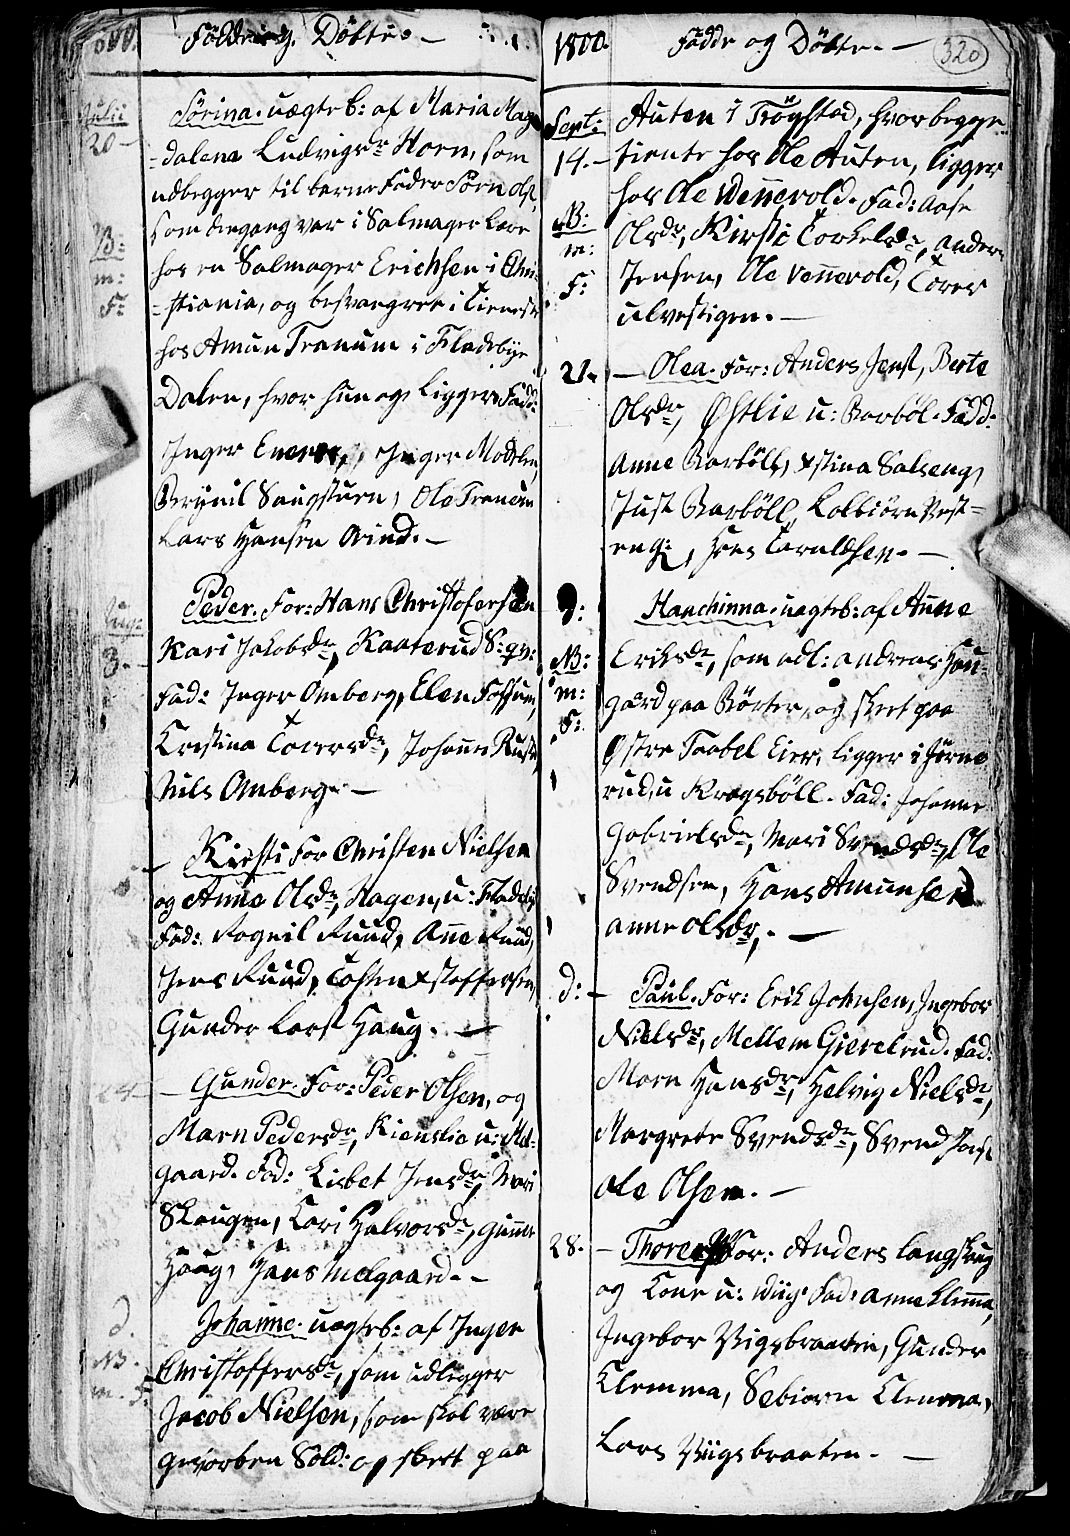 1800. Fødde og Døbte. -
Julii Sørina. uægte b: af Maria Mag
20 - -dalena Ludvigsdr Horn, som
udlegger til barnefader Sørn Ols,
som dengang var i Salmager Lære
hos en Salmager Erichsen i Chri-
-stiania, og besvangret i Tieneste
hos Amun Tranum i Fladebye
Dalen, hvor hun og ligger. Fadd:
Inger Enern, Inger Moblen,
Bryniil Saugstuen, Ole Tranum
Lars Hansen Orind. -
NB:
m:
F:
Aug: Peder. For: Hans Christofersen
3. Kari Jacobsdr, Kaaterud S: gr:
Fad: Inger Omberg, Elen Fossum,
Cristina Toversdr, Johanne Rust,
Nils Omberg. -
- Kirsti For Christen Nielsen
og Anne Olsdr, Hagen, u: Fladeby
Fad: Rognil Ruud, Anne Ruud,
Jens Ruud, Tosten Xstoffersen,
Gunder Lars Haug. -
24 - - Gunder. For: Peder Olsen, og
Marn Pedersdr, Kienslie u: Mel-
gaard. Fad: Lisbet Jensdr, Mari
Skaugen, Kari Halvorsdr, Gunner
Haug, Hans Melgaard. -
d. Johanne. uægteb: af Inger
NB. Christoffersdr, som udlegger
m. F: Jacob Nielsen, som skal være
gevorben Sold: og skeet paa
1800. Fødde og Døbte. - 320
Sept: Auten i Trøgstad, hvor begge
14. - tiente hos Ole Auten, ligger
hos Ole Wennevold. Fad: Aase
NB: Olsdr, Kirsti Torkelsdr, Anders
m:
F: Jensen, Ole Vennevold, Tores
Ulvestigen. -
21. - Olea. For: Anders Jens, Berte
Olsdr, Østlie u: Barbøl. Fadd:
Anne Barbøll, Xstina Salseng,
Just Barbøll, Kolbiørn Vest-
eng, Hans Taraldsen. -
d: Hanchinna. uægteb: af Anne
NB: Eriksdr, som udl: Andreas Hau-
m: gaard paa Børter, og skeet paa
F: Østre Taabel Eier, ligger i Jørne
rud, u Kragsbøll. Fad: Johanne
Gabrielsdr, Mari Svendsdr, Ole
Svendsen, Hans Amunsen
Anne Olsdr,. -
d: - Paul. For: Erik Johnsen, Ingebor
Nielsdr, Mellem Gierelrud. Fad:
Marn Hansdr, Helvig Nielsdr,
Margrete Svendsdr, Svend Jens
Ole Olsen. -
28. - Thore. For: Anders Langskug
og Kone u: Wiig. Fad: Anne Klemma,
Ingebor Viigsbraaten, Gunder
Klemma, Sebiorn Klemma,
Lars Viigsbraaten. -